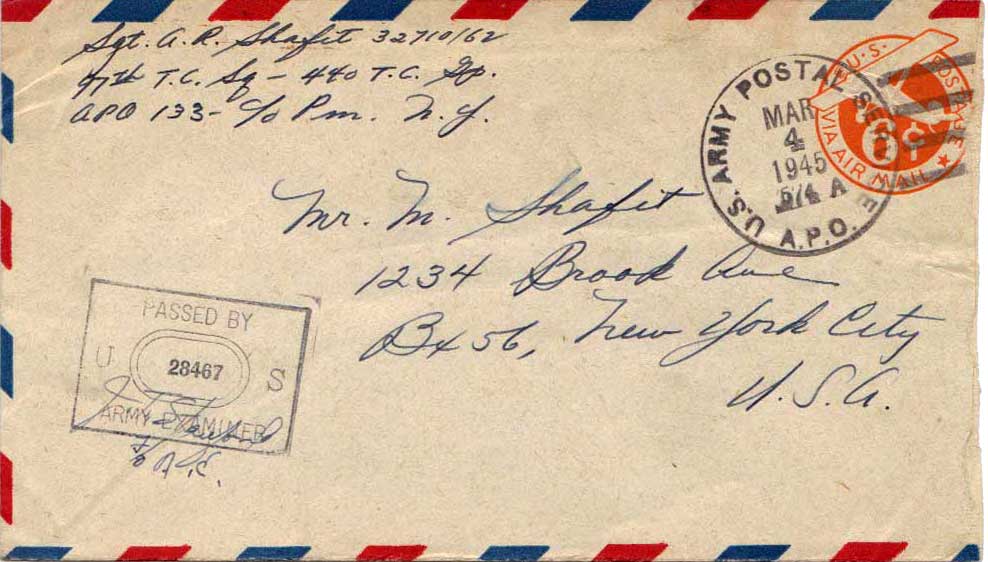 Sgt. A. R. Shafit 32710162
97th T.C. Sq - 440 T.C. Gp.
APO 133 - c/o Pm. N.Y.
U.S. ARMY POSTAL SERVICE
MAR
4
1945
A
A.P.O.
U.S. POSTAGE
6¢
VIA AIR MAIL
Mr. M. Shafit
1234 Brook Ave
Bx 56, New York City
U.S.A.
PASSED BY
U 28467 S
ARMY EXAMINER